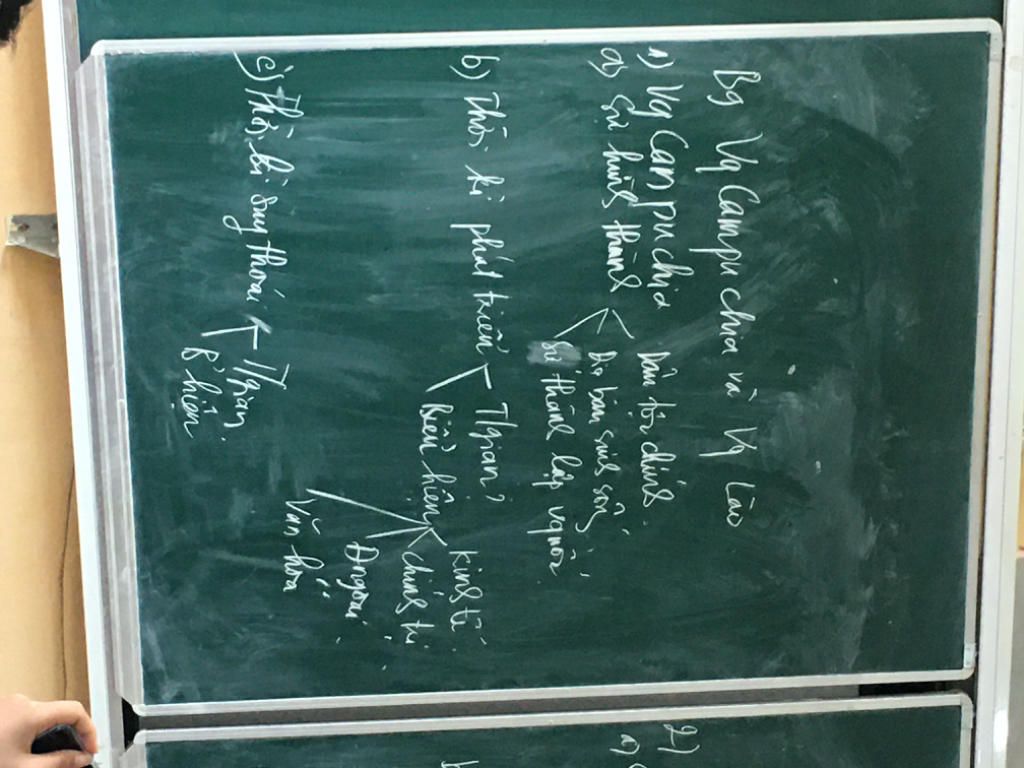 B9 Vq Campuchia và Vq Lào
1) Vq Campuchia
a) Sự hình thành
Dân tộc chính.
Địa bàn sinh sống
Sự thành lập vq nước
b) Thời kì phát triển
T/gian?
Biểu hiện
Kinh tế
chính trị
Đngoại
Văn hóa
c) Thời kì suy thoái
T/gian.
B' hiện
2)
a)
b